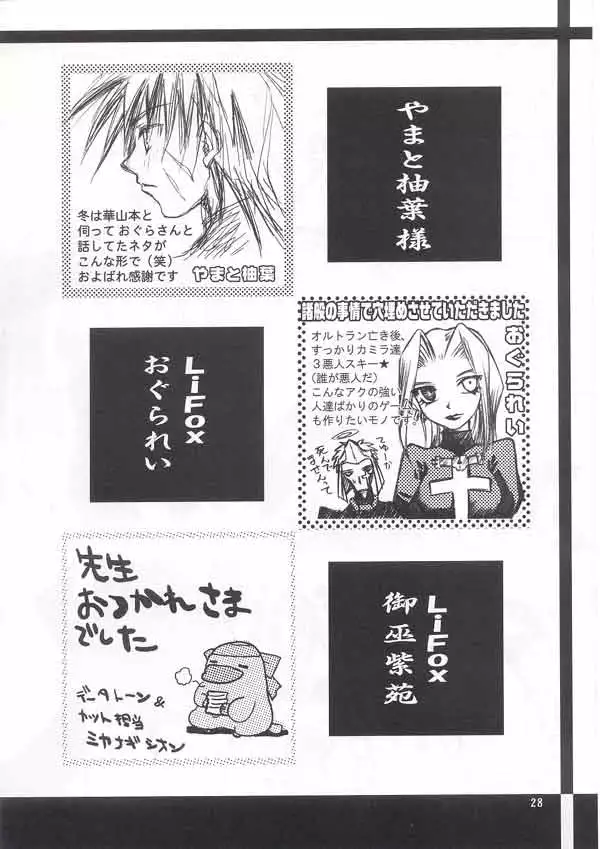 やまと柚葉様
冬は華山本と
伺って おぐらさんと
話してたネタが
こんな形で（笑）
およばれ感謝です
やまと柚葉
諸般の事情で穴埋めさせていただきました
おぐられい
オルトラン亡き後、
すっかりカミラ達
３悪人スキー★
（誰が悪人だ）
こんなアクの強い
人達ばかりのゲーム
も作りたいモノです！
てゆーか
死んで
ませんって
LiFox
おぐられい
先生
おつかれさま
でした
データトーン &
カット担当
ミカナギシオン
LiFox
御巫紫苑
28